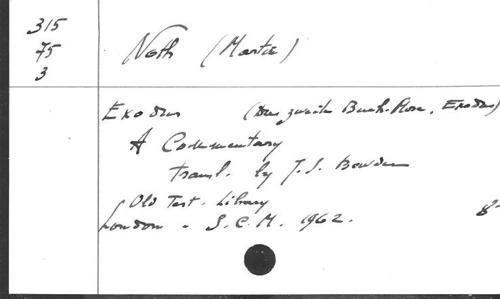 315
75
3
Noth (Martin)
Exodus (Das zweite Buch Mose, Exodus)
A Commentary
transl. by J. S. Bowden
Old Test. Library
London - S.C.M. 1962.
8°